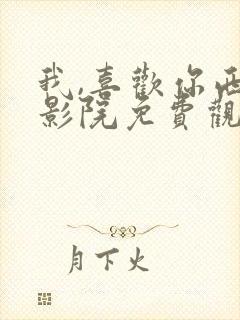 我,喜歡你西
影院免費觀
月下火